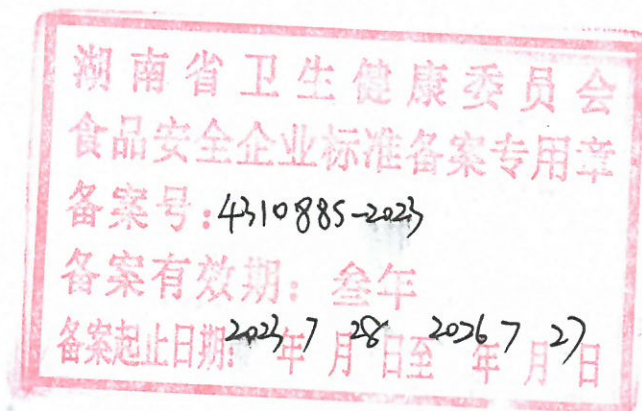 湖南省卫生健康委员会
食品安全企业标准备案专用章
备案号:4310885-2023
备案有效期:叁年
备案起止日期:2023年7月28日至2026年7月27日